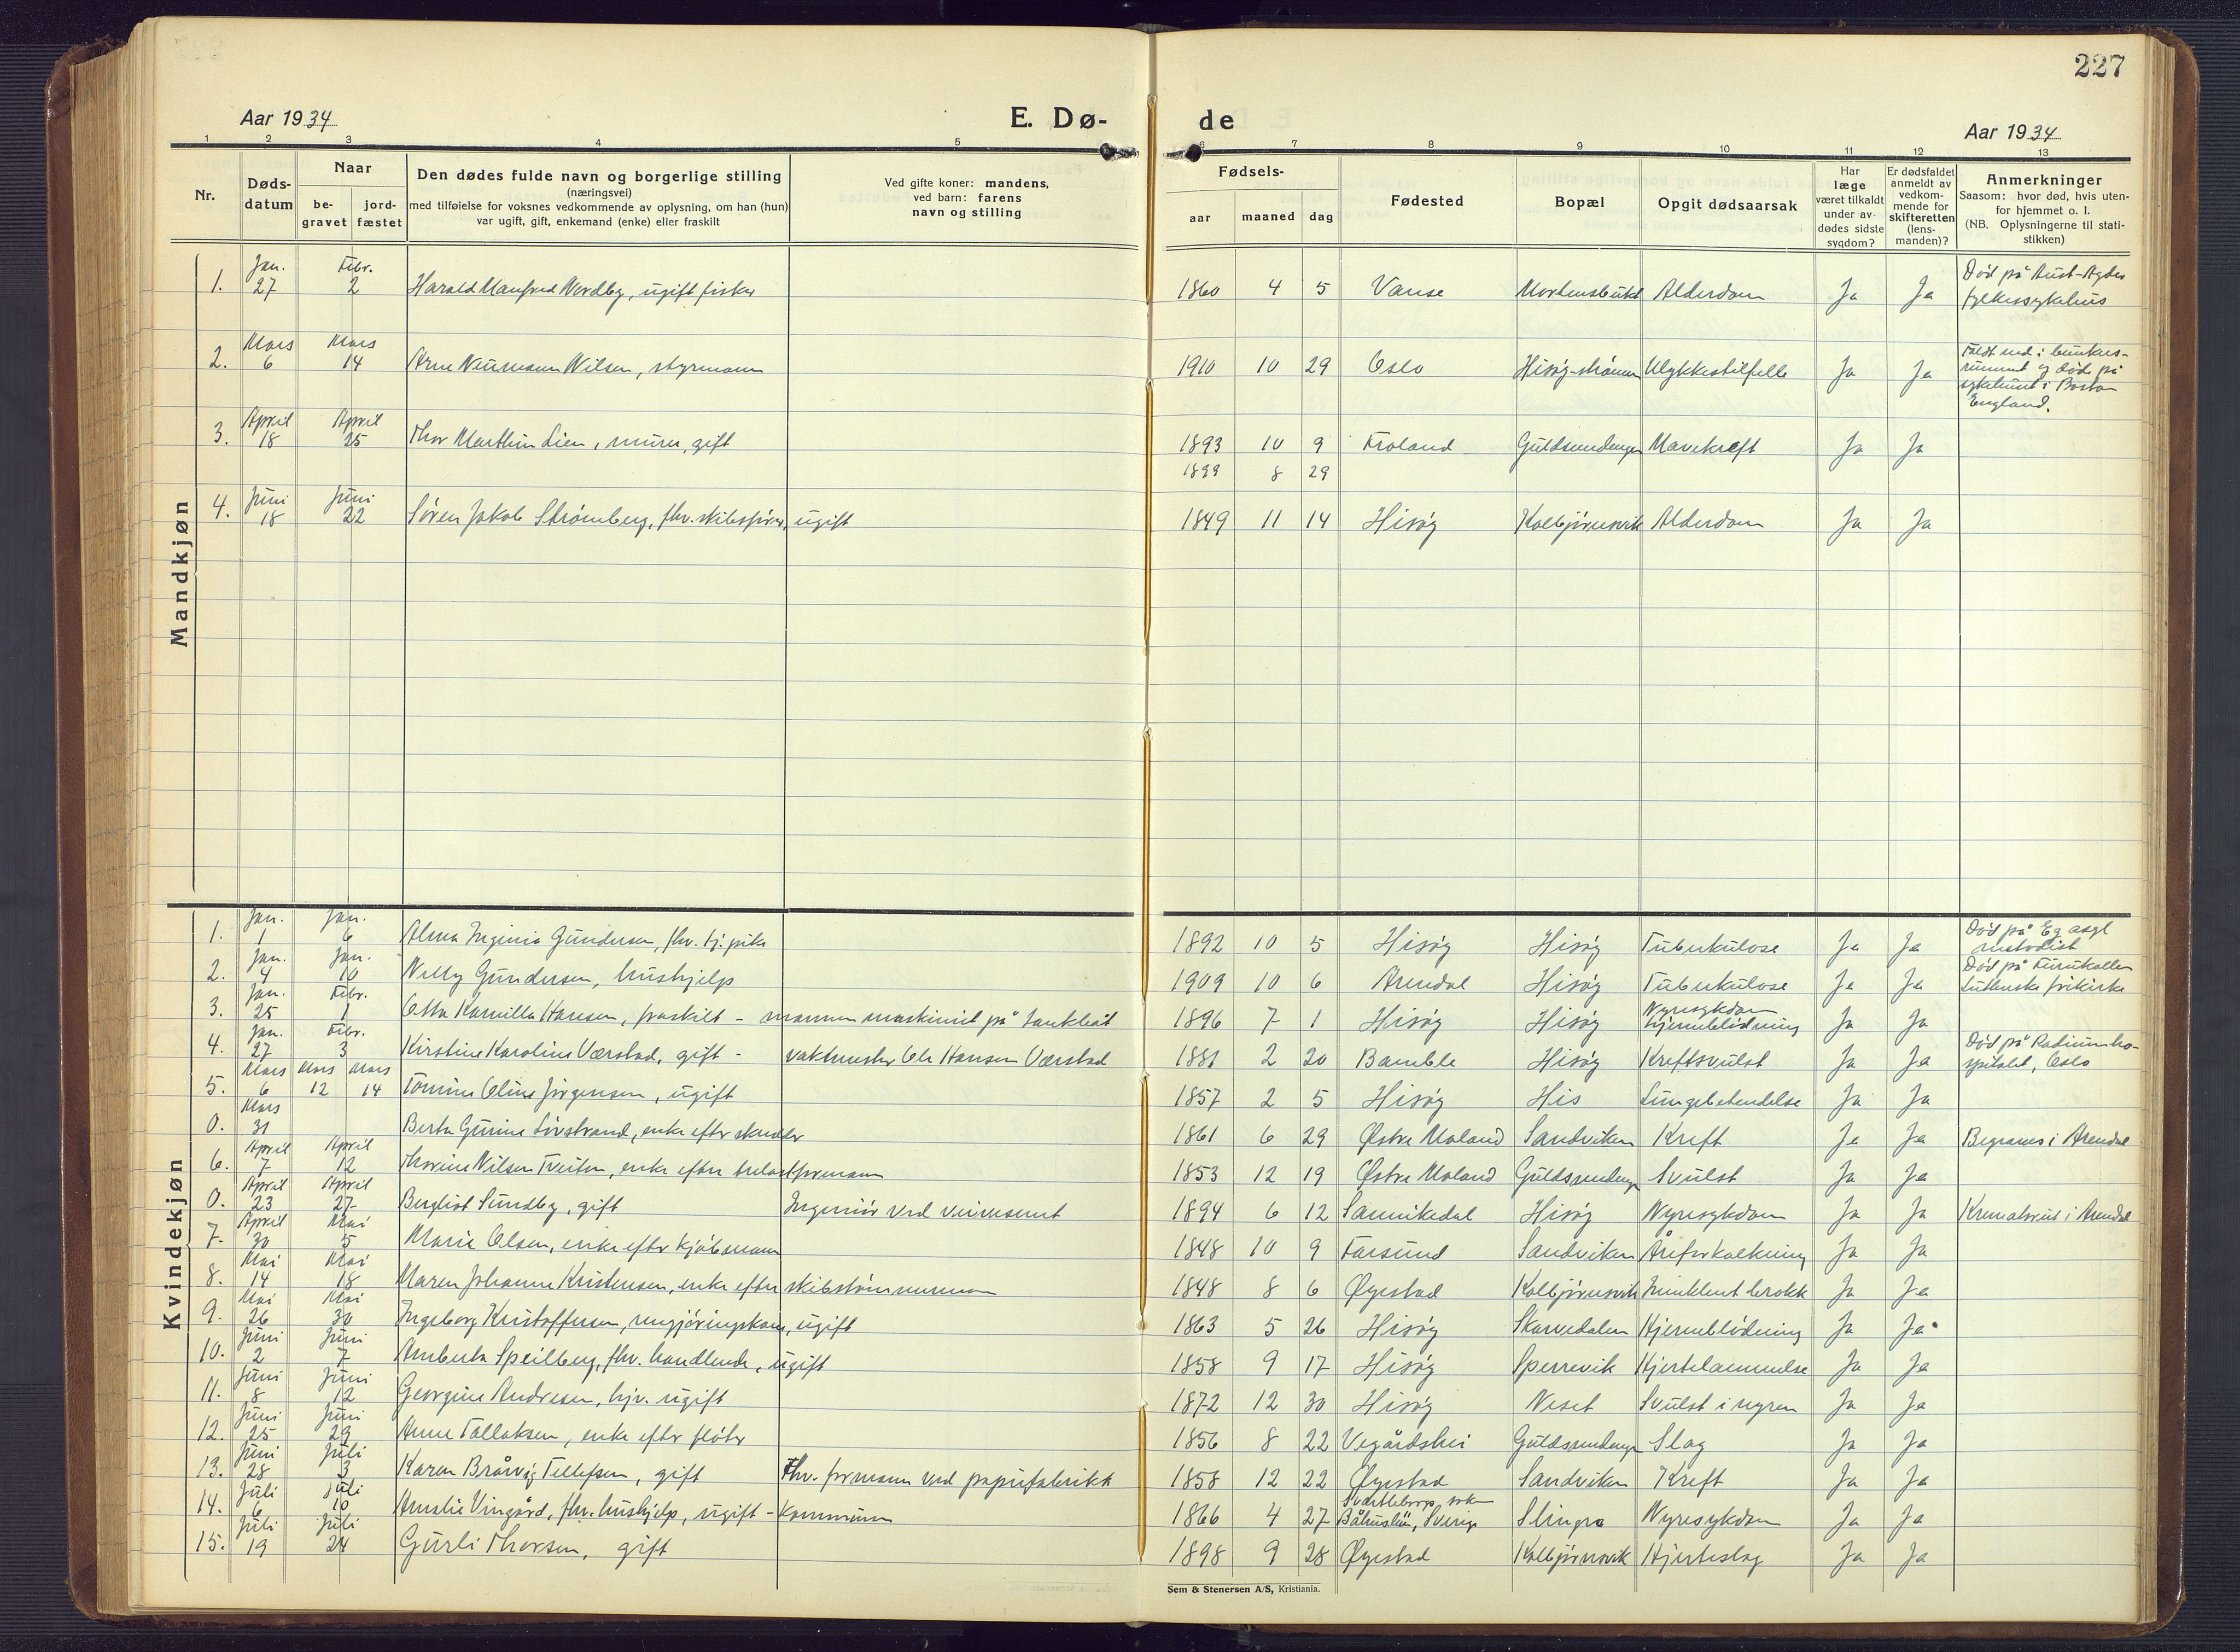 227
Aar 1934
E. Dø-
de
Aar 1934
1 2 3 4 5 6 7 8 9 10 11 12 13
Nr.
Døds-
datum
Naar
be-
gravet
jord-
fæstet
Den dødes fulde navn og borgerlige stilling
(næringsvei)
med tilføielse for voksnes vedkommende av oplysning, om han (hun)
var ugift, gift, enkemand (enke) eller fraskilt
Ved gifte koner: mandens,
ved barn: farens
navn og stilling
Fødsels-
aar maaned dag
Fødested
Bopæl
Opgit dødsaarsak
Har
læge
været tilkaldt
under av-
dødes sidste
sygdom?
Er dødsfaldet
anmeldt av
vedkom-
mende for
skifteretten
(lens-
manden)?
Anmerkninger
Saasom: hvor død, hvis uten-
for hjemmet o. l.
(NB. Oplysningerne til stati-
stikken)
Mandkjøn
Jan. Febr. Død på Aust-Agder
1. 27 2 Harald Manfred Nordby, ugift fisker 1860 4 5 Vanse Alderdom Ja Ja fylkessykehus
Mars Mars
2. 6 14 Arne Neumann Nilsen, styrmann 1910 10 29 Oslo Hisøy-strømmen Ulykkestilfelle Ja Ja
Faldt ned i bunkers-
rummet og døde på
sykehuset i Boston
England.
April April
3. 18 25 Thor Marthin Lien, murer, gift 1893 10 9 Froland Guldsmedengen Mavekreft Ja Ja
1899 8 29
Juni Juni
4. 18 22 Søren Jakob Strømberg, fhv. skibsfører, ugift 1849 11 14 Hisøy Kolbjørnsvik Alderdom Ja Ja
Kvindekjøn
Jan. Jan. Død på Eg asyl
1. 1 6 Alma Gundersen, fhv. tj. pike 1892 10 5 Hisøy Hisøy Tuberkulose Ja Ja metodist
Jan. Jan. Død på Furukollen
2. 4 10 Nelly Gundersen, hushjelp 1909 10 6 Arendal Hisøy Tuberkulose Ja Ja Lutherske frikirke
Jan. Febr. Nyresykdom
3. 25 1 Kamilla Hansen, fraskilt - mannen maskinist på tankbåt 1896 7 1 Hisøy Hisøy Hjerneblødning Ja Ja
Jan. Febr. Død på Radiumho-
4. 27 3 Kirstine Karoline Værstad, gift - vaktmester Ole Hansen Værstad 1881 2 20 Bamble Hisøy Kreftsvulst Ja Ja spitalet, Oslo
Mars Mars Mars
5. 6 12 14 Tomine Oline Jørgensen, ugift 1857 2 5 Hisøy His Lungebetendelse Ja Ja
Mars
0. 31 Berta Gurine Løvstrand, enke efter skredder 1861 6 29 Østre Moland Sandviken Kreft Ja Ja Begraves i Arendal
April April
6. 7 12 Thorine Nilsen Tveiten, enke efter formann 1853 12 19 Østre Moland Guldsmedengen Svulst Ja Ja
April April
0. 23 27 Bergliot Sundby, gift Ingeniør ved veivesenet 1894 6 12 Sannikedal Hisøy Nyresykdom Ja Ja Krematoriet i Arendal
April Mai
7. 30 5 Marie Olsen, enke efter kjøbmann 1848 10 9 Farsund Sandviken Åreforkalkning Ja Ja
Mai Mai
8. 14 18 Maren Johanne Kristensen, enke efter skibstømmermann 1848 8 6 Øyestad Kolbjørnsvik Inneklemt brokk Ja Ja
Mai Mai
9. 26 30 Ingeborg Kristoffersen, rengjøringskone, ugift 1863 5 26 Hisøy Skarvedalen Hjerneblødning Ja Ja
Juni Juni
10. 2 7 Speilberg, fhv. handlende, ugift 1858 9 17 Hisøy Sperrevik Hjertelammelse Ja Ja
Juni Juni
11. 8 12 Georgine Andresen, hjv. ugift 1872 12 30 Hisøy Neset Svulst i nyren Ja Ja
Juni Juni
12. 25 29 Anne Tallaksen, enke efter fløter 1856 8 22 Vegårdshei Guldsmedengen Slag Ja Ja
Juni Juli
13. 28 3 Karen Bråvig Tellefsen, gift Fhv. formann ved papirfabrikk 1858 12 22 Øyestad Sandviken Kreft Ja Ja
Juli Juli Svarteborg sokn
14. 6 10 Amalie Vingård, fhv. hushjelp, ugift - kommunen 1866 4 27 Båhuslän, Sverige Slingra Nyresykdom Ja Ja
Juli Juli
15. 19 24 Gurli Thorsen, gift 1898 9 28 Øyestad Kolbjørnsvik Hjerteslag Ja Ja
Sem & Stenersen A/S, Kristiania.